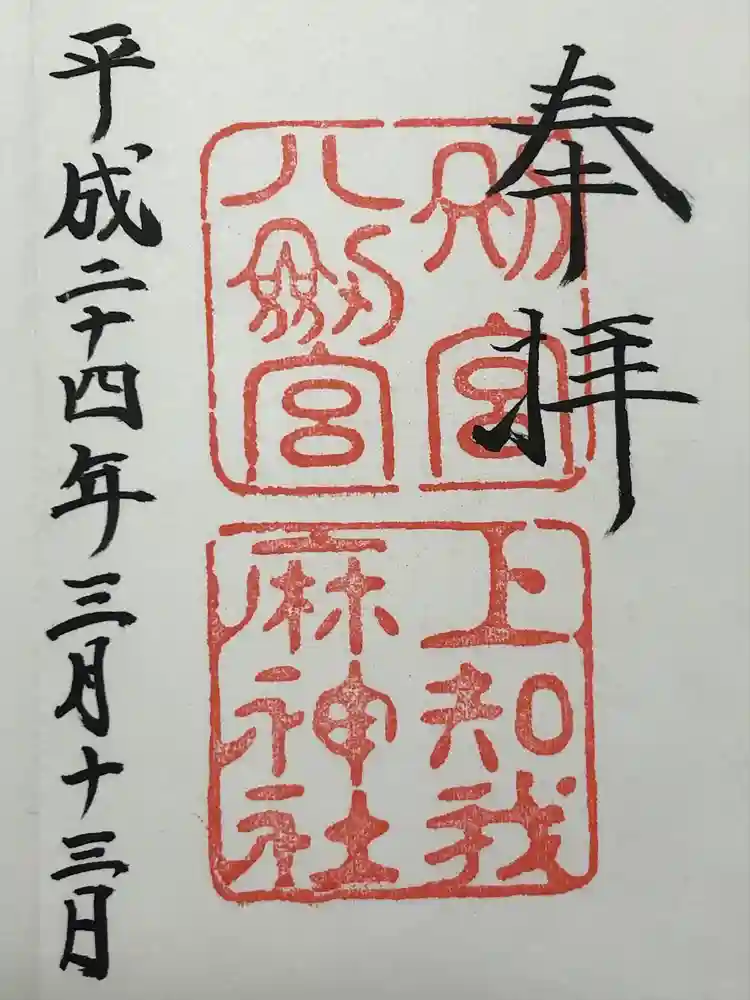 奉拝
別宮
八劔宮
上知我
麻神社
平成二十四年三月十三日